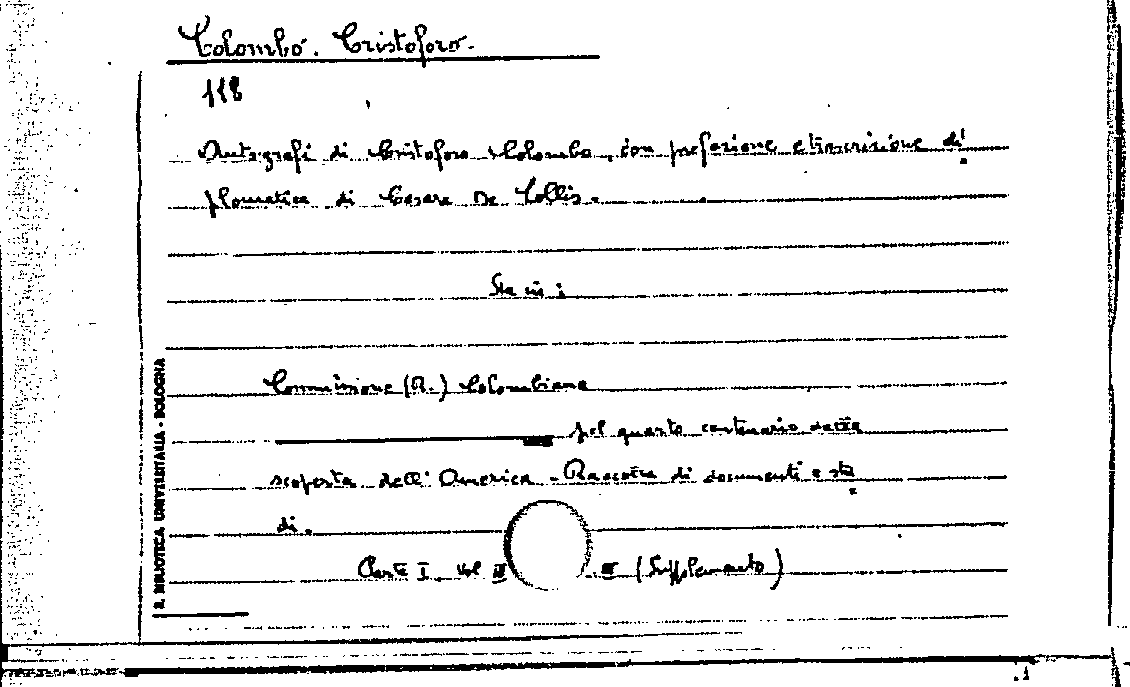 Colombo. Cristoforo.
118
Autografi di Cristoforo Colombo, con prefazione e trascrizione di
plomatica di Cesare De Lollis.
Sta in:
Commissione (R.) Colombiana
pel quarto centenario della
scoperta dell'America - Raccolta di documenti e stu
di.
Parte I. vol III (Supplemento)
R. BIBLIOTECA UNIVERSITARIA - BOLOGNA